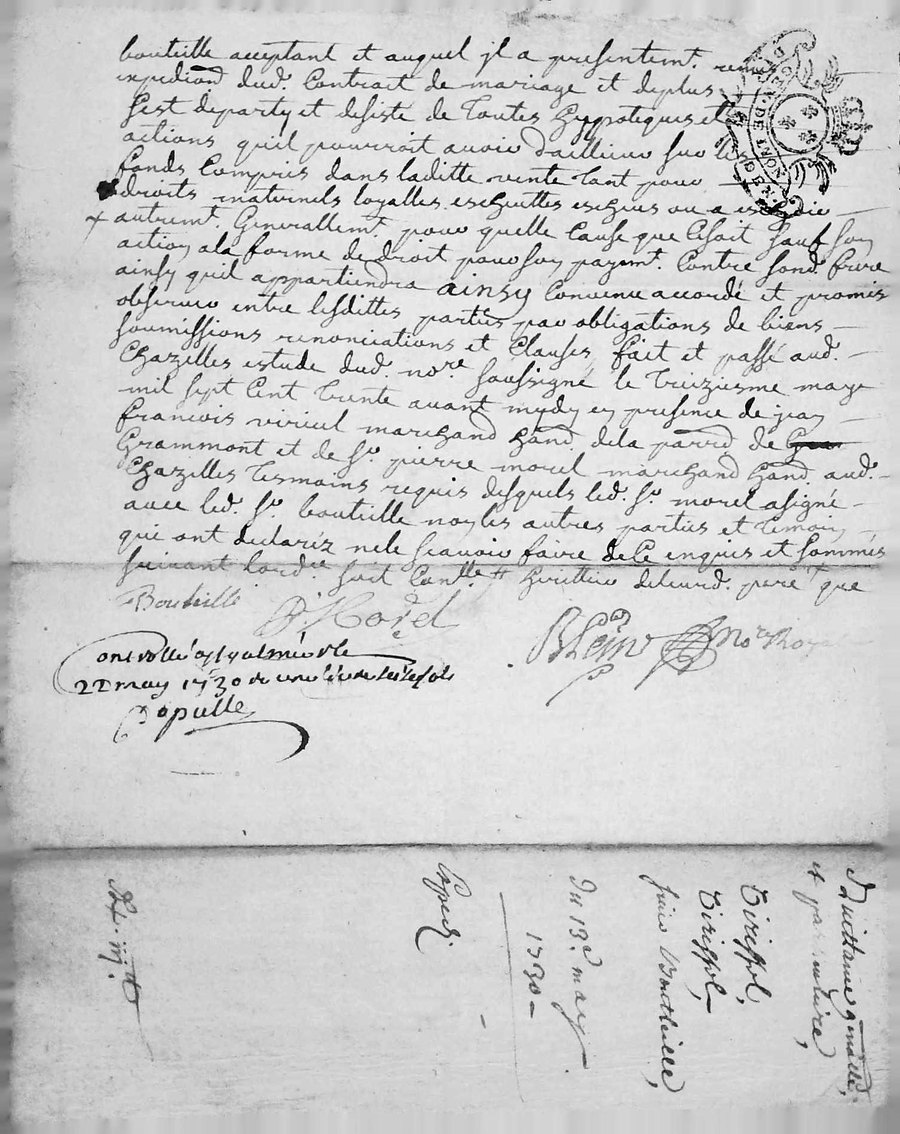 bouteille acceptant et auquel jl a presentemt. remis
expediond dud. Contrat de mariage et deplus
sest departy et desiste de Toutes hyppoteques et
actions quil pourroit avoir dailleurs sur le
fonds Compris dans laditte vente tant pour
droits maternels loyalles escheuttes escheus ou a eschoir
autremt. Generallemt. pour quelle Cause que Cesoit sauf son
action ala forme de droit pour son payemt. Contre sond. frere
ainsy quil appartiendra ainsy Convenu accordé et promis
observer entre lesdittes parties par obligations de biens
soumissions renonciations et Clauses, fait et passé aud.
Chazelles estude dud. nore. soussigné le Treiziesme maye
mil sept Cent Trente avant mydy en presence de jean
francois viricel marchand hand. dela parrd. de
Grammont et de Sr. pierre morel marchand hand. aud.
Chazelles Tesmoins requis desquels led. Sr. morel asigné
avec led. Sr. bouteille non les autres parties et Temoin
qui ont declaréz nele scavoir faire de Ce enquis et sommés
suivant lordce. que
Bouteille
Morel
Nore Royal
22 may 1730
DE LYON
GEN. DE
NOT
quittance
et
Tirippol,
Tirippol,
Boutteille,
Du 13e. may
1730
Exped.